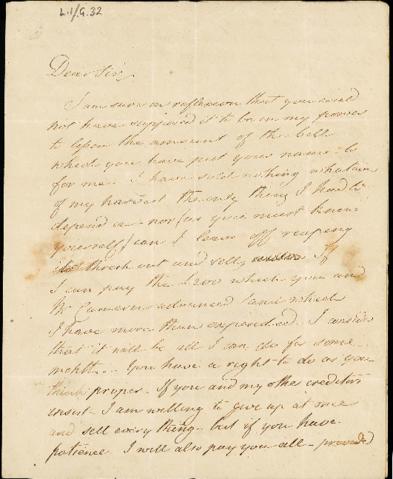 L.1/G.32
Dear Sir,
I am sure on reflexion that you could
not have supposed it to be in my power
to lessen the amount of the bill
which you have put your name to
for me. I have sold nothing whatever
of my harvest the only thing I had to
depend on - nor (as you must know
yourself) can I leave off reaping
to thresh out and sell. If
I can pay the £200 which you and
Mr Cameron advanced (and which
I have more than expended) I consider
that it will be all I can do for some
months. - You have a right to do as you
think proper - If you and my other creditors
insist - I am willing to give up at once
and sell every thing - but if you have
patience I will also pay you all - provided